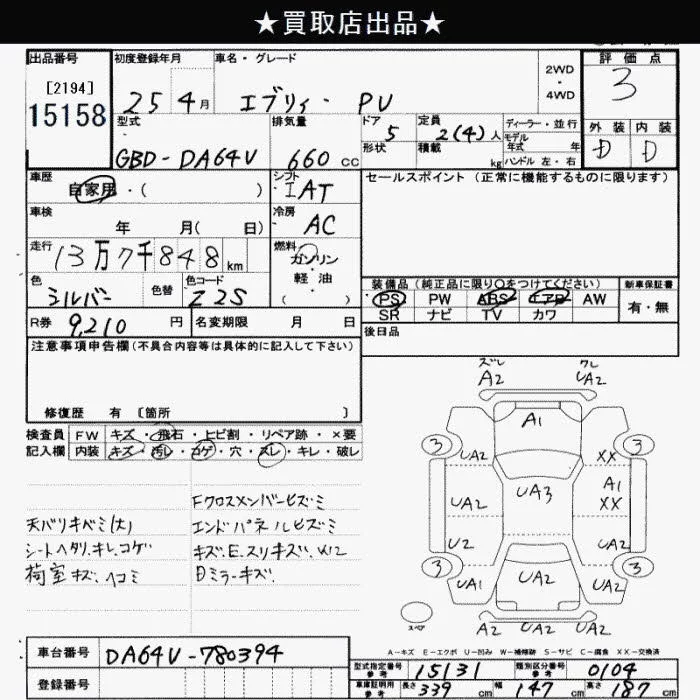 ★買取店出品★
出品番号 初度登録年月 車名・グレード 2WD・4WD 評価点
[2194]
15158 25 4月 エブリィ・PV 3
型式 排気量 ドア 定員 ディーラー・並行 外装 内装
5 2(4)人 モデル年式 年
GBD-DA64V 660cc 形状 積載 kg ハンドル 左・右 D D
車歴 自家用・( ) シフト IAT セールスポイント(正常に機能するものに限ります)
車検 年 月( 日) 冷房 AC
走行 13万7千848km 燃料 ガソリン
軽・油
( )
色 シルバー 色替 色コード Z2S
装備品(純正品に限り○をつけてください) 新車保証書
PS PW ABS エアB AW 有・無
SR ナビ TV カワ
R券 9,210円 名変期限 月 日 後日品
注意事項申告欄(不具合内容等は具体的に記入して下さい)
修復歴 有 〔箇所 〕
検査員記入欄 FW キズ・飛石・ヒビ割・リペア跡・×要
内装 キズ・汚レ・コゲ・穴・スレ・キレ・破レ
Fクロスメンバーヒズミ
天バリキバミ(大) エンドパネルヒズミ
シートヘタリ.キレ.コゲ キズ.E.スリキズ.W12
荷室キズ.ヘコミ Dミラーキズ.
ズレ クレ
A2 UA2
A1
3 3
UA2 XX
A1
UA2 UA3 XX
U2 UA2
3 3
UA1 UA2 UA2
スペア A2 UA2 UA2
A-キズ E-エクボ U-凹み W-補修跡 S-サビ C-腐食 XX-交換済
車台番号 DA64V-780394
型式指定番号 参考 15131 類別区分番号 参考 0104
登録番号
車庫証明用 参考 長さ 339cm 幅 147cm 高さ 187cm